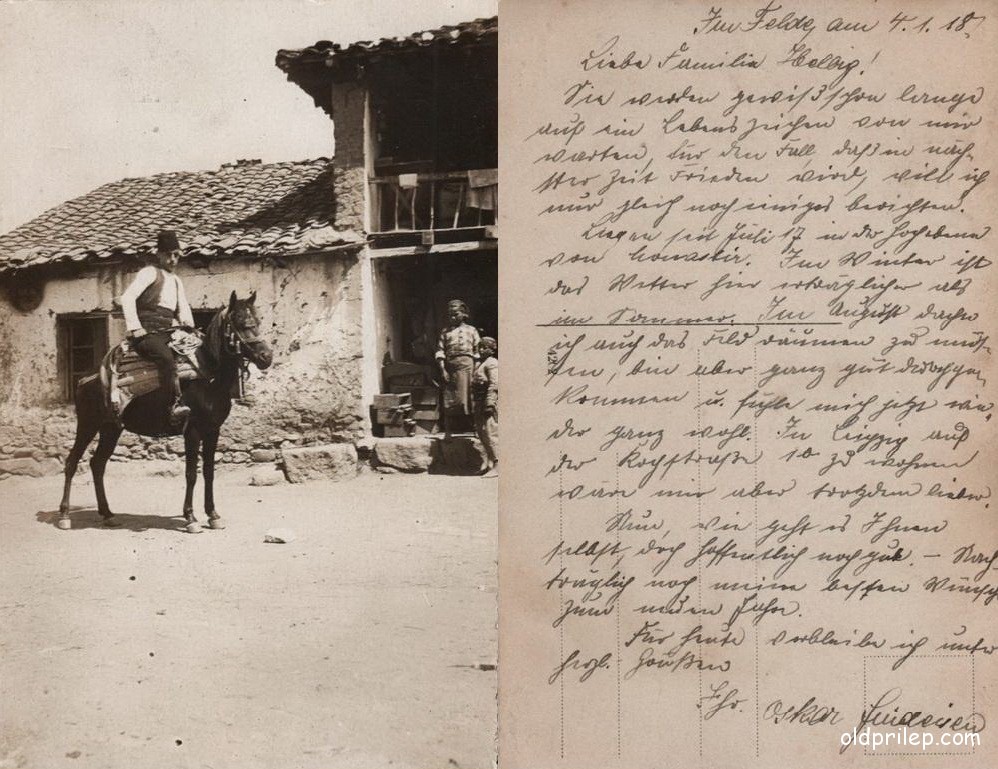 Im Felde, am 4.1.18.
Liebe Familie Helbig!
Sie werden gewiß schon lange
auf ein Lebenszeichen von mir
warten, für den Fall, daß in näch-
ster Zeit Frieden wird, will ich
nur gleich noch einiges berichten.
Liegen seit Juli 17 in der Hochebene
von Monastir. Im Winter ist
das Wetter hier erträglicher als
im Sommer. Im August dachte
ich auch das Feld räumen zu müs-
sen, bin aber ganz gut durchge-
kommen u. fühle mich jetzt wie-
der ganz wohl. In Leipzig auf
der Kochstraße 10 zu wohnen
wäre mir aber trotzdem lieber.
Nun, wie geht es Ihnen
selbst, doch hoffentlich noch gut. – Nach-
träglich noch meine besten Wünsche
zum neuen Jahre.
Für heute verbleibe ich unter
herzl. Grüßen
Ihr Oskar
oldprilep.com